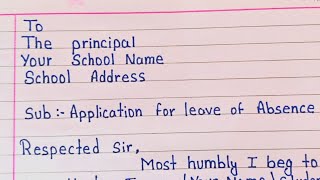 To
The principal
Your School Name
School Address
Sub:- Application for leave of Absence
Respected Sir,
Most humbly I beg to